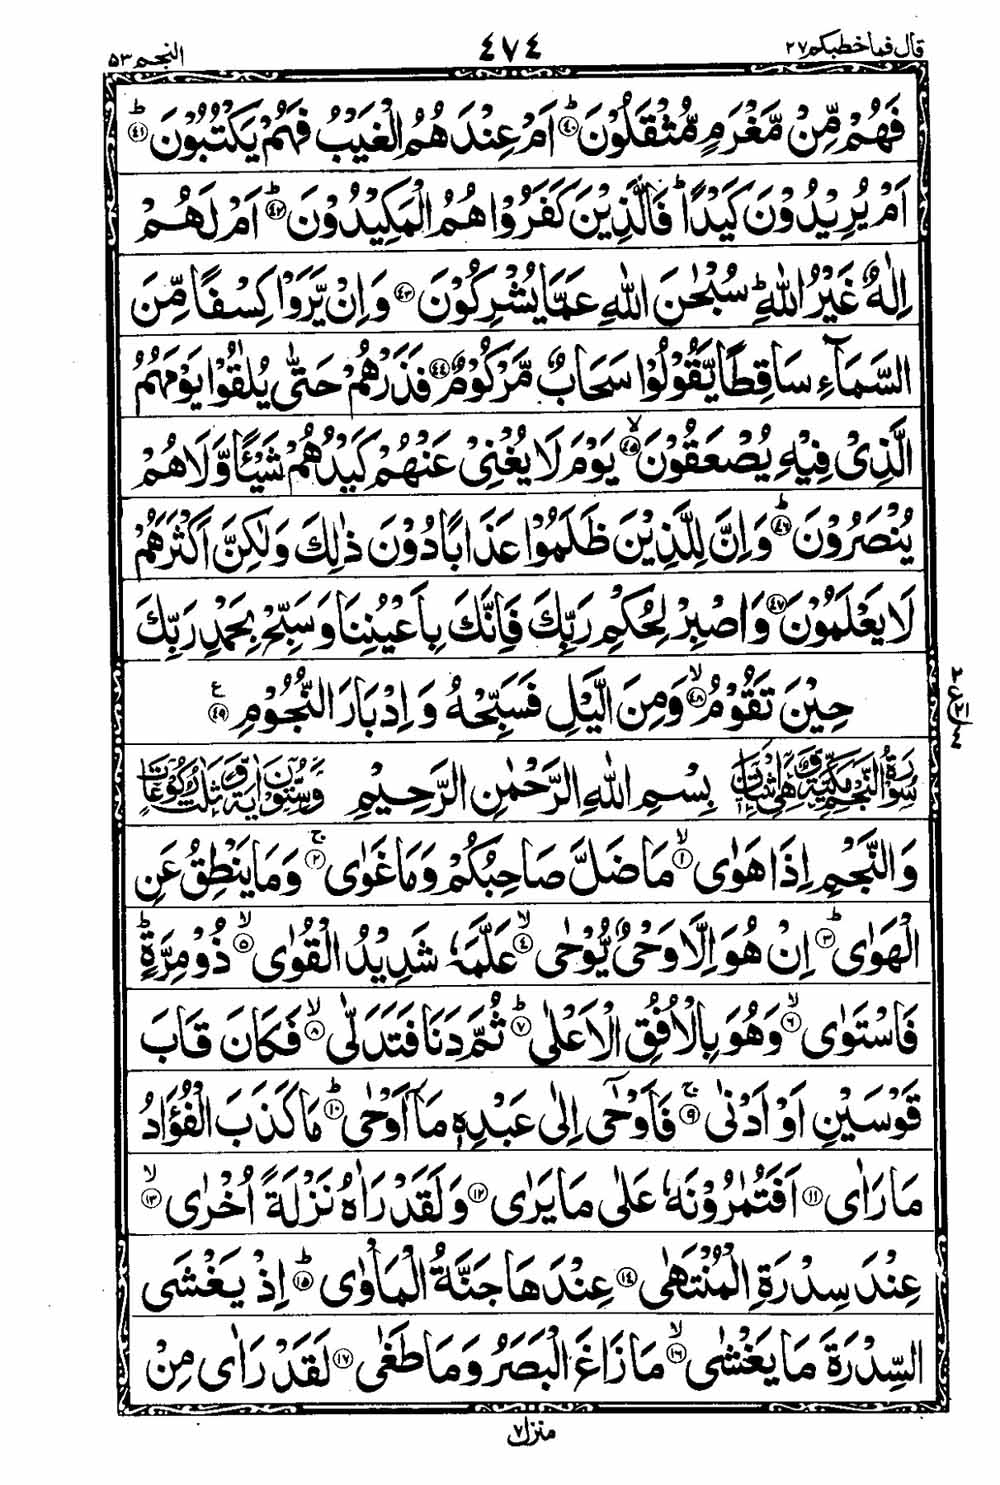 قال فماخطبكم ٢٧ ٤٧٤ النجم ٥٣
فَهُمْ مِّنْ مَّغْرَمٍ مُّثْقَلُوْنَ ؕ﴿۴۰﴾ اَمْ عِنْدَهُمُ الْغَيْبُ فَهُمْ يَكْتُبُوْنَ ؕ﴿۴۱﴾
اَمْ يُرِيْدُوْنَ كَيْدًا ؕ فَالَّذِيْنَ كَفَرُوْا هُمُ الْمَكِيْدُوْنَ ؕ﴿۴۲﴾ اَمْ لَهُمْ
اِلٰهٌ غَيْرُ اللّٰهِ ؕ سُبْحٰنَ اللّٰهِ عَمَّا يُشْرِكُوْنَ ﴿۴۳﴾ وَاِنْ يَّرَوْا كِسْفًا مِّنَ
السَّمَآءِ سَاقِطًا يَّقُوْلُوْا سَحَابٌ مَّرْكُوْمٌ ﴿۴۴﴾ فَذَرْهُمْ حَتّٰى يُلٰقُوْا يَوْمَهُمُ
الَّذِىْ فِيْهِ يُصْعَقُوْنَ ۙ﴿۴۵﴾ يَوْمَ لَا يُغْنِىْ عَنْهُمْ كَيْدُهُمْ شَيْـًٔا وَّلَا هُمْ
يُنْصَرُوْنَ ؕ﴿۴۶﴾ وَاِنَّ لِلَّذِيْنَ ظَلَمُوْا عَذَابًا دُوْنَ ذٰلِكَ وَلٰكِنَّ اَكْثَرَهُمْ
لَا يَعْلَمُوْنَ ﴿۴۷﴾ وَاصْبِرْ لِحُكْمِ رَبِّكَ فَاِنَّكَ بِاَعْيُنِنَا وَسَبِّحْ بِحَمْدِ رَبِّكَ
حِيْنَ تَقُوْمُ ۙ﴿۴۸﴾ وَمِنَ الَّيْلِ فَسَبِّحْهُ وَاِدْبَارَ النُّجُوْمِ ﴿۴۹﴾ ع
سُوْرَةُ النَّجْمِ مَكِّيَّةٌ وَّهِىَ اثْنَتَانِ بِسْمِ اللّٰهِ الرَّحْمٰنِ الرَّحِيْمِ وَسِتُّوْنَ اٰيَةً وَّثَلٰثُ رُكُوْعَاتٍ
وَالنَّجْمِ اِذَا هَوٰى ۙ﴿۱﴾ مَا ضَلَّ صَاحِبُكُمْ وَمَا غَوٰى ۚ﴿۲﴾ وَمَا يَنْطِقُ عَنِ
الْهَوٰى ؕ﴿۳﴾ اِنْ هُوَ اِلَّا وَحْىٌ يُّوْحٰى ۙ﴿۴﴾ عَلَّمَهٗ شَدِيْدُ الْقُوٰى ۙ﴿۵﴾ ذُوْ مِرَّةٍ ؕ
فَاسْتَوٰى ۙ﴿۶﴾ وَهُوَ بِالْاُفُقِ الْاَعْلٰى ؕ﴿۷﴾ ثُمَّ دَنَا فَتَدَلّٰى ۙ﴿۸﴾ فَكَانَ قَابَ
قَوْسَيْنِ اَوْ اَدْنٰى ۚ﴿۹﴾ فَاَوْحٰۤى اِلٰى عَبْدِهٖ مَاۤ اَوْحٰى ؕ﴿۱۰﴾ مَا كَذَبَ الْفُؤَادُ
مَا رَاٰى ﴿۱۱﴾ اَفَتُمٰرُوْنَهٗ عَلٰى مَا يَرٰى ﴿۱۲﴾ وَلَقَدْ رَاٰهُ نَزْلَةً اُخْرٰى ۙ﴿۱۳﴾
عِنْدَ سِدْرَةِ الْمُنْتَهٰى ﴿۱۴﴾ عِنْدَهَا جَنَّةُ الْمَاْوٰى ؕ﴿۱۵﴾ اِذْ يَغْشَى
السِّدْرَةَ مَا يَغْشٰى ۙ﴿۱۶﴾ مَا زَاغَ الْبَصَرُ وَمَا طَغٰى ﴿۱۷﴾ لَقَدْ رَاٰى مِنْ
منزل ٧